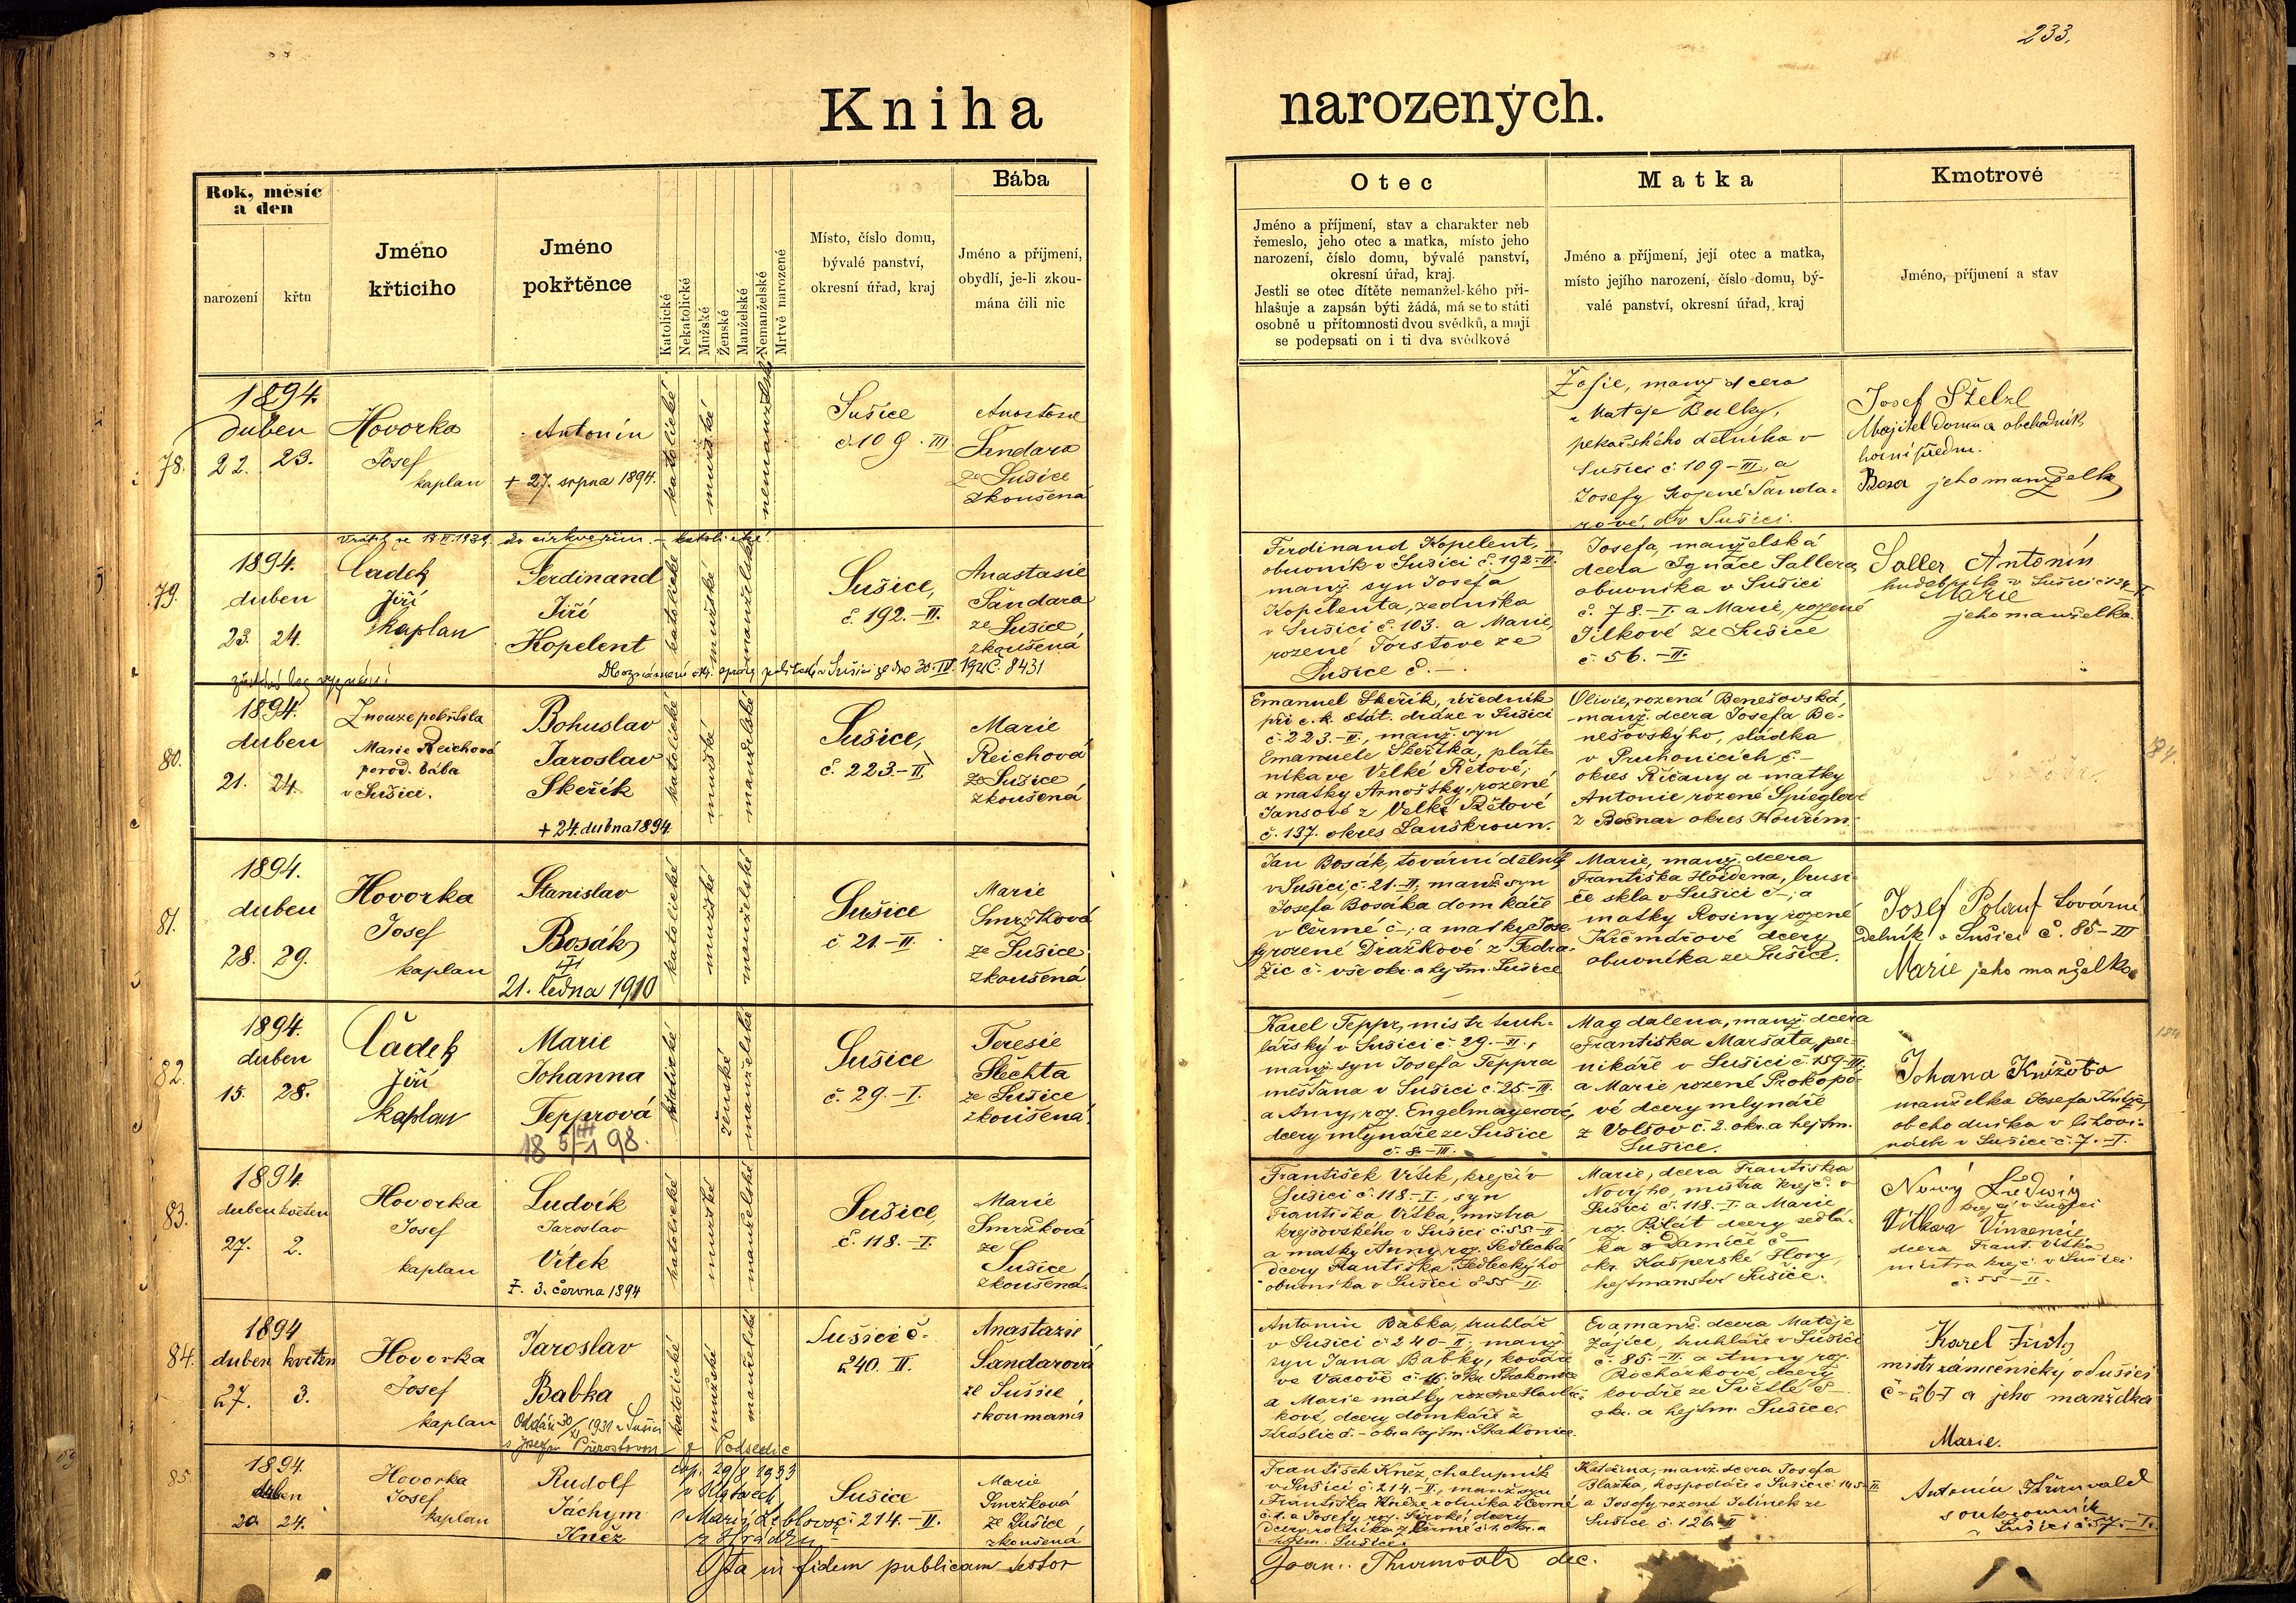 233.
Kniha
narozených.
Rok, měsíc
a den
narození
křtu
Jméno
křtícího
Jméno
pokřtěnce
Katolické
Nekatolické
Mužské
Ženské
Manželské
Nemanželské
Mrtvě narozené
Místo, číslo domu,
bývalé panství,
okresní úřad, kraj
Bába
Jméno a příjmení,
obydlí, je-li zkou-
mána čili nic
Otec
Jméno a příjmení, stav a charakter neb
řemeslo, jeho otec a matka, místo jeho
narození, číslo domu, bývalé panství,
okresní úřad, kraj.
Jestli se otec dítěte nemanžel-kého při-
hlašuje a zapsán býti žádá, má se to státi
osobně u přítomnosti dvou svědků, a mají
se podepsati on i ti dva svědkové
Matka
Jméno a příjmení, její otec a matka,
místo jejího narození, číslo domu, bý-
valé panství, okresní úřad, kraj
Kmotrové
Jméno, příjmení a stav
78.
1894.
duben
22. 23.
Hovorka
Josef
kaplan
Antonín
+ 27. srpna 1894.
katolické
mužské
nemanželské
Sušice
č 109. III
Šandara
ze Sušice
zkoušená
Žofie, manž dcera
Matěje Bulky,
pekařského dělníka v
Sušici č. 109-III, a
Josefy rozené Šanda-
rové, ze Sušici.
Josef Stelzl
Majitel domu a obchodník
horní předm.
Rosa jeho manželka
79.
1894.
duben
23. 24.
do církve řím. - katolické
Čadek
Jiří
kaplan
Ferdinand
Jiří
Kopelent
katolické
mužské
manželské
Sušice,
č 192.-II.
Anastasie
Šandara
ze Sušice
zkoušená
30.IV. 1921 Č. 8431
Ferdinand Kopelent,
obuvník v Sušici č. 192-II.
manž. syn Josefa
Kopelenta, zedníka
v Sušici č. 103. a Marie,
rozené Forstové ze
Sušice č. -.
Josefa, manželská
dcera Ignáce Sallera
obuvníka v Sušici
č. 78.-I. a Marie, rozené
Jílkové ze Sušice
č. 56.-II.
Saller Antonín
Marie
jeho manželka.
80.
1894.
duben
21. 24.
Z nouze pokřtila
Marie Reichová
porod. bába
v Sušici.
Bohuslav
Jaroslav
Skeřík
+ 24. dubna 1894.
katolické
mužské
manželské
Sušice,
č. 223.-II.
Marie
Reichová
ze Sušice
zkoušená
Emanuel Skeřík, úředník
při c. k. stát. dráze v Sušici
č. 223.-II., manž. syn
Emanuele Skeříka, pláte-
níka ve Velké Řetové;
a matky Arnoštky, rozené
Jansové z Velké Řetové
č. 137. okres Lanškroun.
Olivie, rozená Benešovská,
manž. dcera Josefa Be-
nešovského, sládka
v Pruhonicích, č. -
okres Říčany a matky
Antonie rozené Spieglové
okres Kouřim.
81.
1894.
duben
28. 29.
Hovorka
Josef
kaplan
Stanislav
Bosák
21. ledna 1910
katolické
mužské
manželské
Sušice
č 21.-II.
Marie
Smržková
ze Sušice
zkoušená
Jan Bosák, tovární dělník
v Sušici, č. 21.-II, manž. syn
Josefa Bosáka domkáře
v Čermé č-; a matky Jose-
fy rozené Dražkové z Fedra-
žic č. vše okr. a hejtm. Sušice
Marie, manž. dcera
Františka Hojdena, brusi-
če skla v Sušici č-; a
matky Rosiny rozené
Krčmářové dcery
obuvníka ze Sušice.
Josef Polauf tovární
dělník v Sušici č. 85-III
Marie jeho manželka
82.
1894.
duben
15. 28.
Čadek
Jiří
kaplan
Marie
Johanna
Tepprová
katolické
ženské
manželské
Sušice
č. 29.-I.
Teresie
Šlechta
ze Sušice
zkoušená
Karel Teppr, mistr truh-
lářský v Sušici č. 29.-II.,
manž. syn Josefa Teppra
měšťana v Sušici č. 25-III.
a Anny, roz. Engelmayerové,
dcery mlynáře ze Sušice
č. 8.-III.
Magdalena, manž. dcera
Františka Maršáta, per-
nikáře v Sušici č. 159-III,
a Marie rozené Prokopo-
vé dcery mlynáře
z Volšov č. 2. okr. a hejtm.
Sušice.
manželka Josefa
v Sušici č. 7.-I.
83.
1894.
duben květen
27. 2.
Hovorka
Josef
kaplan
Ludvík
Jaroslav
Vítek
+ 3. června 1894
katolické
mužské
manželské
Sušice,
č. 118.-I.
Marie
Smržková
ze
Sušice
zkoušená
František Vítek, krejčí v
Sušici č. 118-I., syn
Františka Vítka, mistra
krejčovského v Sušici č. 55-II
a matky Anny, roz. Sedlecká
dcery Františka Sedleckýho
obuvníka v Sušici č 55-II.
Marie, dcera Františka
Nového, mistra krejč. v
Sušici č. 118.-I. a Marie
roz. Pílát dcery sedlá-
ka z Damíče č-
okr. Kašperské Hory,
hejtmanství Sušice.
Nový Ludwig
krejčí v Sušici
Vítkova Vincencie
dcera Frant. Vítka
mistra krejč. v Sušici
č. 55-II.
84.
1894
duben květen
27. 3.
Hovorka
Josef
kaplan
Jaroslav
Babka
katolické
mužské
manželské
Sušici č.
240. II.
Anastazie
Šandarová
ze Sušice
zkoumaná
Antonín Babka, truhlář
v Sušici č 240-II, manž.
syn Jana Babky, kováře
a Marie matky
kové, dcery domkáře z
Eva manž. dcera Matěje
Zajíce, truhláře v Sušici
č. 85.-II. a Anny roz.
Rochárkové, dcery
kováře ze Světlé č-
okr. a hejtm. Sušice.
mistr zámečnický v Sušici
č-26-I a jeho manželka
Marie.
85.
1894.
duben
20 24.
Hovorka
Josef
kaplan
Rudolf
Jáchym
Kněz
z Podsedic
29/8 1933
Sušice
č 214.-II.
Marie
Smržková
ze Sušice
zkoušená
František Kněz, chalupník
v Sušici č. 214.-II, manž. syn
hejtm. Sušice.
Kateřina, manž. dcera Josefa
Blažka, hospodáře v Sušici č 145-II
a Josefy rozené Jelínek ze
Sušice č. 126 II
Antonín Thürnvald
soukromník
v Sušici č. 57.-I.
Ita in fidem publicam testor
Joan. Thurnvald dec.